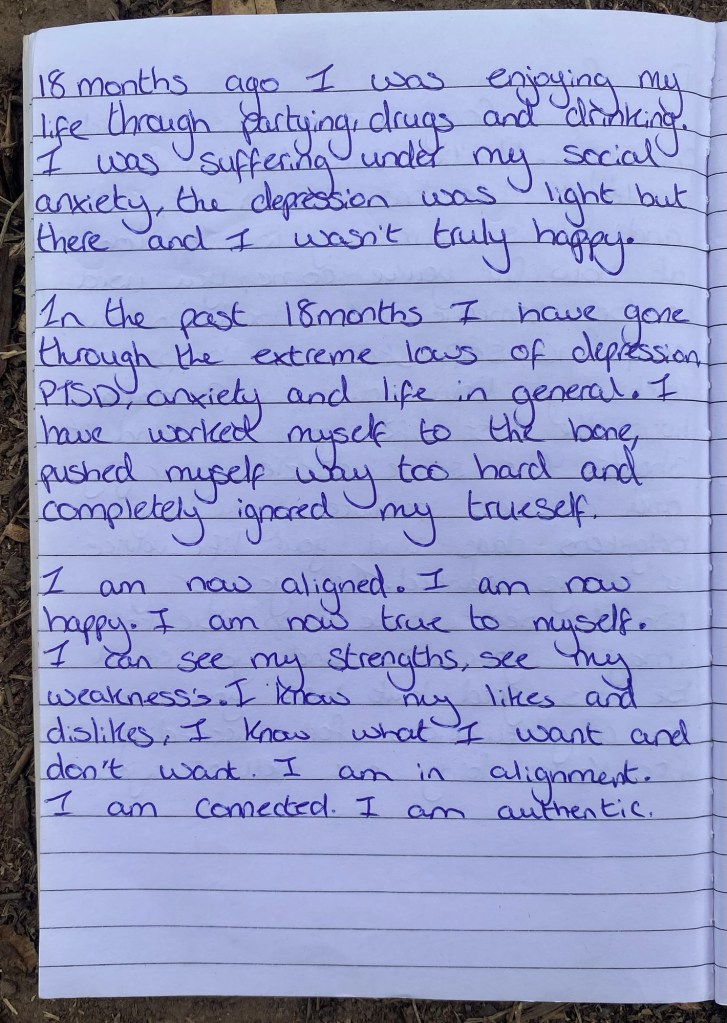 18 months ago I was enjoying my
life through partying, drugs and drinking.
I was suffering under my social
anxiety, the depression was light but
there and I wasn't truly happy.
In the past 18months I have gone
through the extreme lows of depression,
PTSD, anxiety and life in general. I
have worked myself to the bone,
pushed myself way too hard and
completely ignored my trueself.
I am now aligned. I am now
happy. I am now true to myself.
I can see my strengths, see my
weakness's. I know my likes and
dislikes, I know what I want and
don't want. I am in alignment.
I am connected. I am authentic.